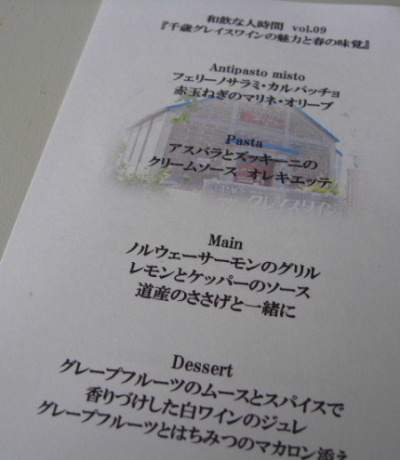 和飲な人時間 vol.09
『千歳グレイスワインの魅力と春の味覚』
Antipasto misto
フェリーノサラミ・カルパッチョ
赤玉ねぎのマリネ・オリーブ
Pasta
アスパラとズッキーニの
クリームソース オレキエッテ
グレイスワイン
Main
ノルウェーサーモンのグリル
レモンとケッパーのソース
道産のささげと一緒に
Dessert
グレープフルーツのムースとスパイスで
香りづけした白ワインのジュレ
グレープフルーツとはちみつのマカロン添え